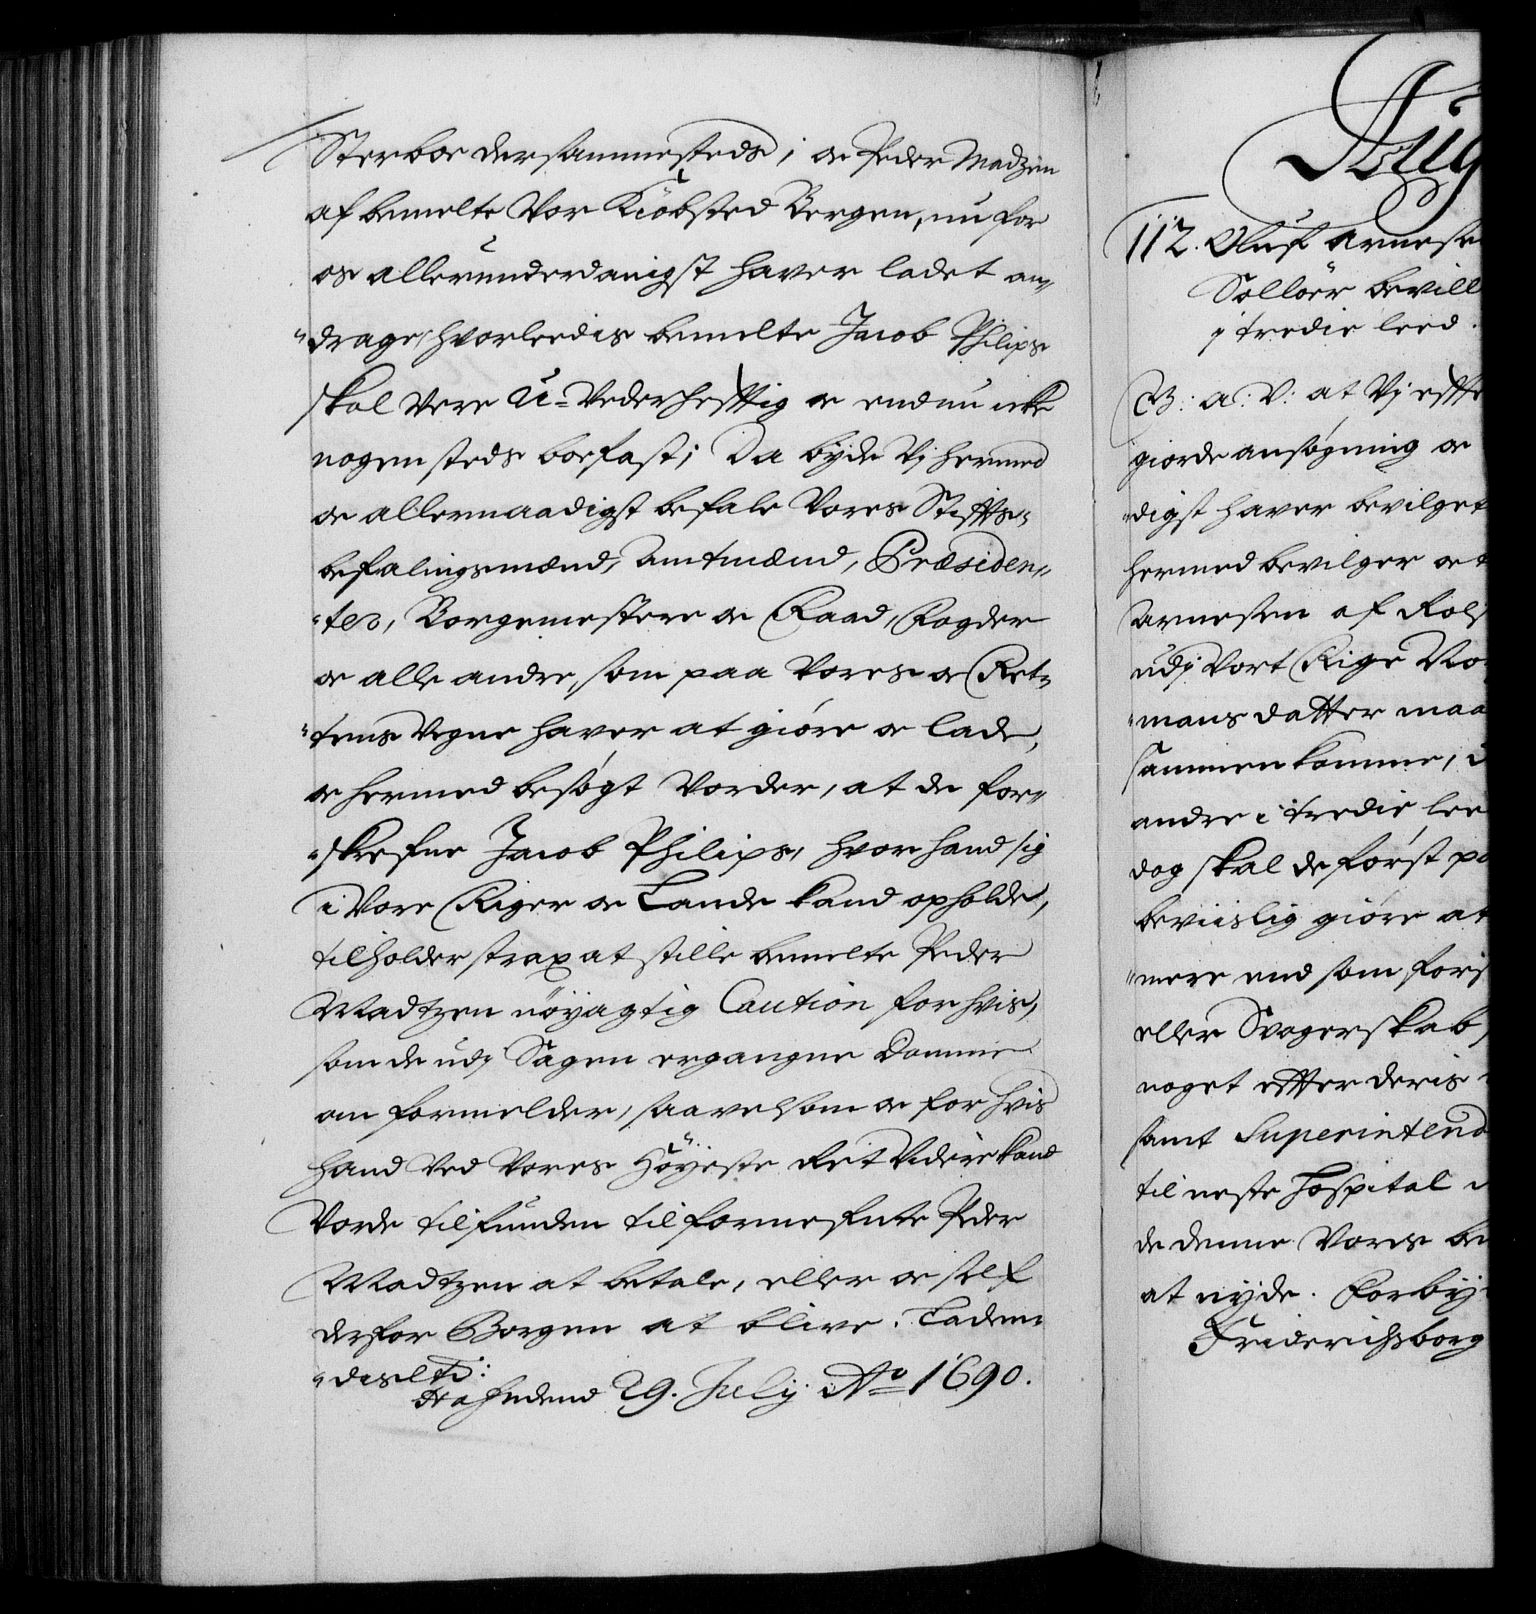 Sterboe dersammesteds, oc Peder Madzen
af bemelte Vor Kiöbsted Bergen, nu for
os allerunderdanigst haver ladet an-
drage, hvorleedis bemelte Jacob Philips
skal Vere U-Vederhefftig oc endnu icke
nogensteds boefast; Da byde Vj hermed
oc allernaadigst befale Vores Stiffts-
befalingsmænd, Amtmænd, Præsiden-
-ter, Borgemestere oc Raad, Fogder
oc alle andre, som paa Vores oc Ret-
-tens Vegne haver at giøre oc lade,
oc hermed besøgt Vorder, at de for-
-skrefne Jacob Philips, hvor hand sig
i Vore Riger oc Lande kand opholde,
tilholder strax at stille bemelte Peder
Madtzen nöyagtig Caution for hvis,
som de udj Sagen ergangne Domme
om formelder, saavelsom oc for hvis
hand Ved Vores Höyeste Ret Videre kand
Vorde tilfunden til fornefnte Peder
Madtzen at betale, eller oc self
derfor Borgen at blive. Ladendes
-des etc:
Hafn den 29. July Ao 1690.
Aug
112. Oluf Arnese
Solloër bevill
i tredie leed.
C5: A: V: at Vj effte
giorde ansøgning oc
-digst haver bevilget
hermed bevilger oc t
Arnesen af Rols
udj Vort Rige No
-mans datter maa
sammenkomme,
andre i tredie lee
dog skal de først p
beviislig giøre at
-mere end som fors
eller Svogerskab,
noget effter deris
samt Superintend
til neste Hospital
de denne Vores be
at nyde. Forbyd
Friderichsborg